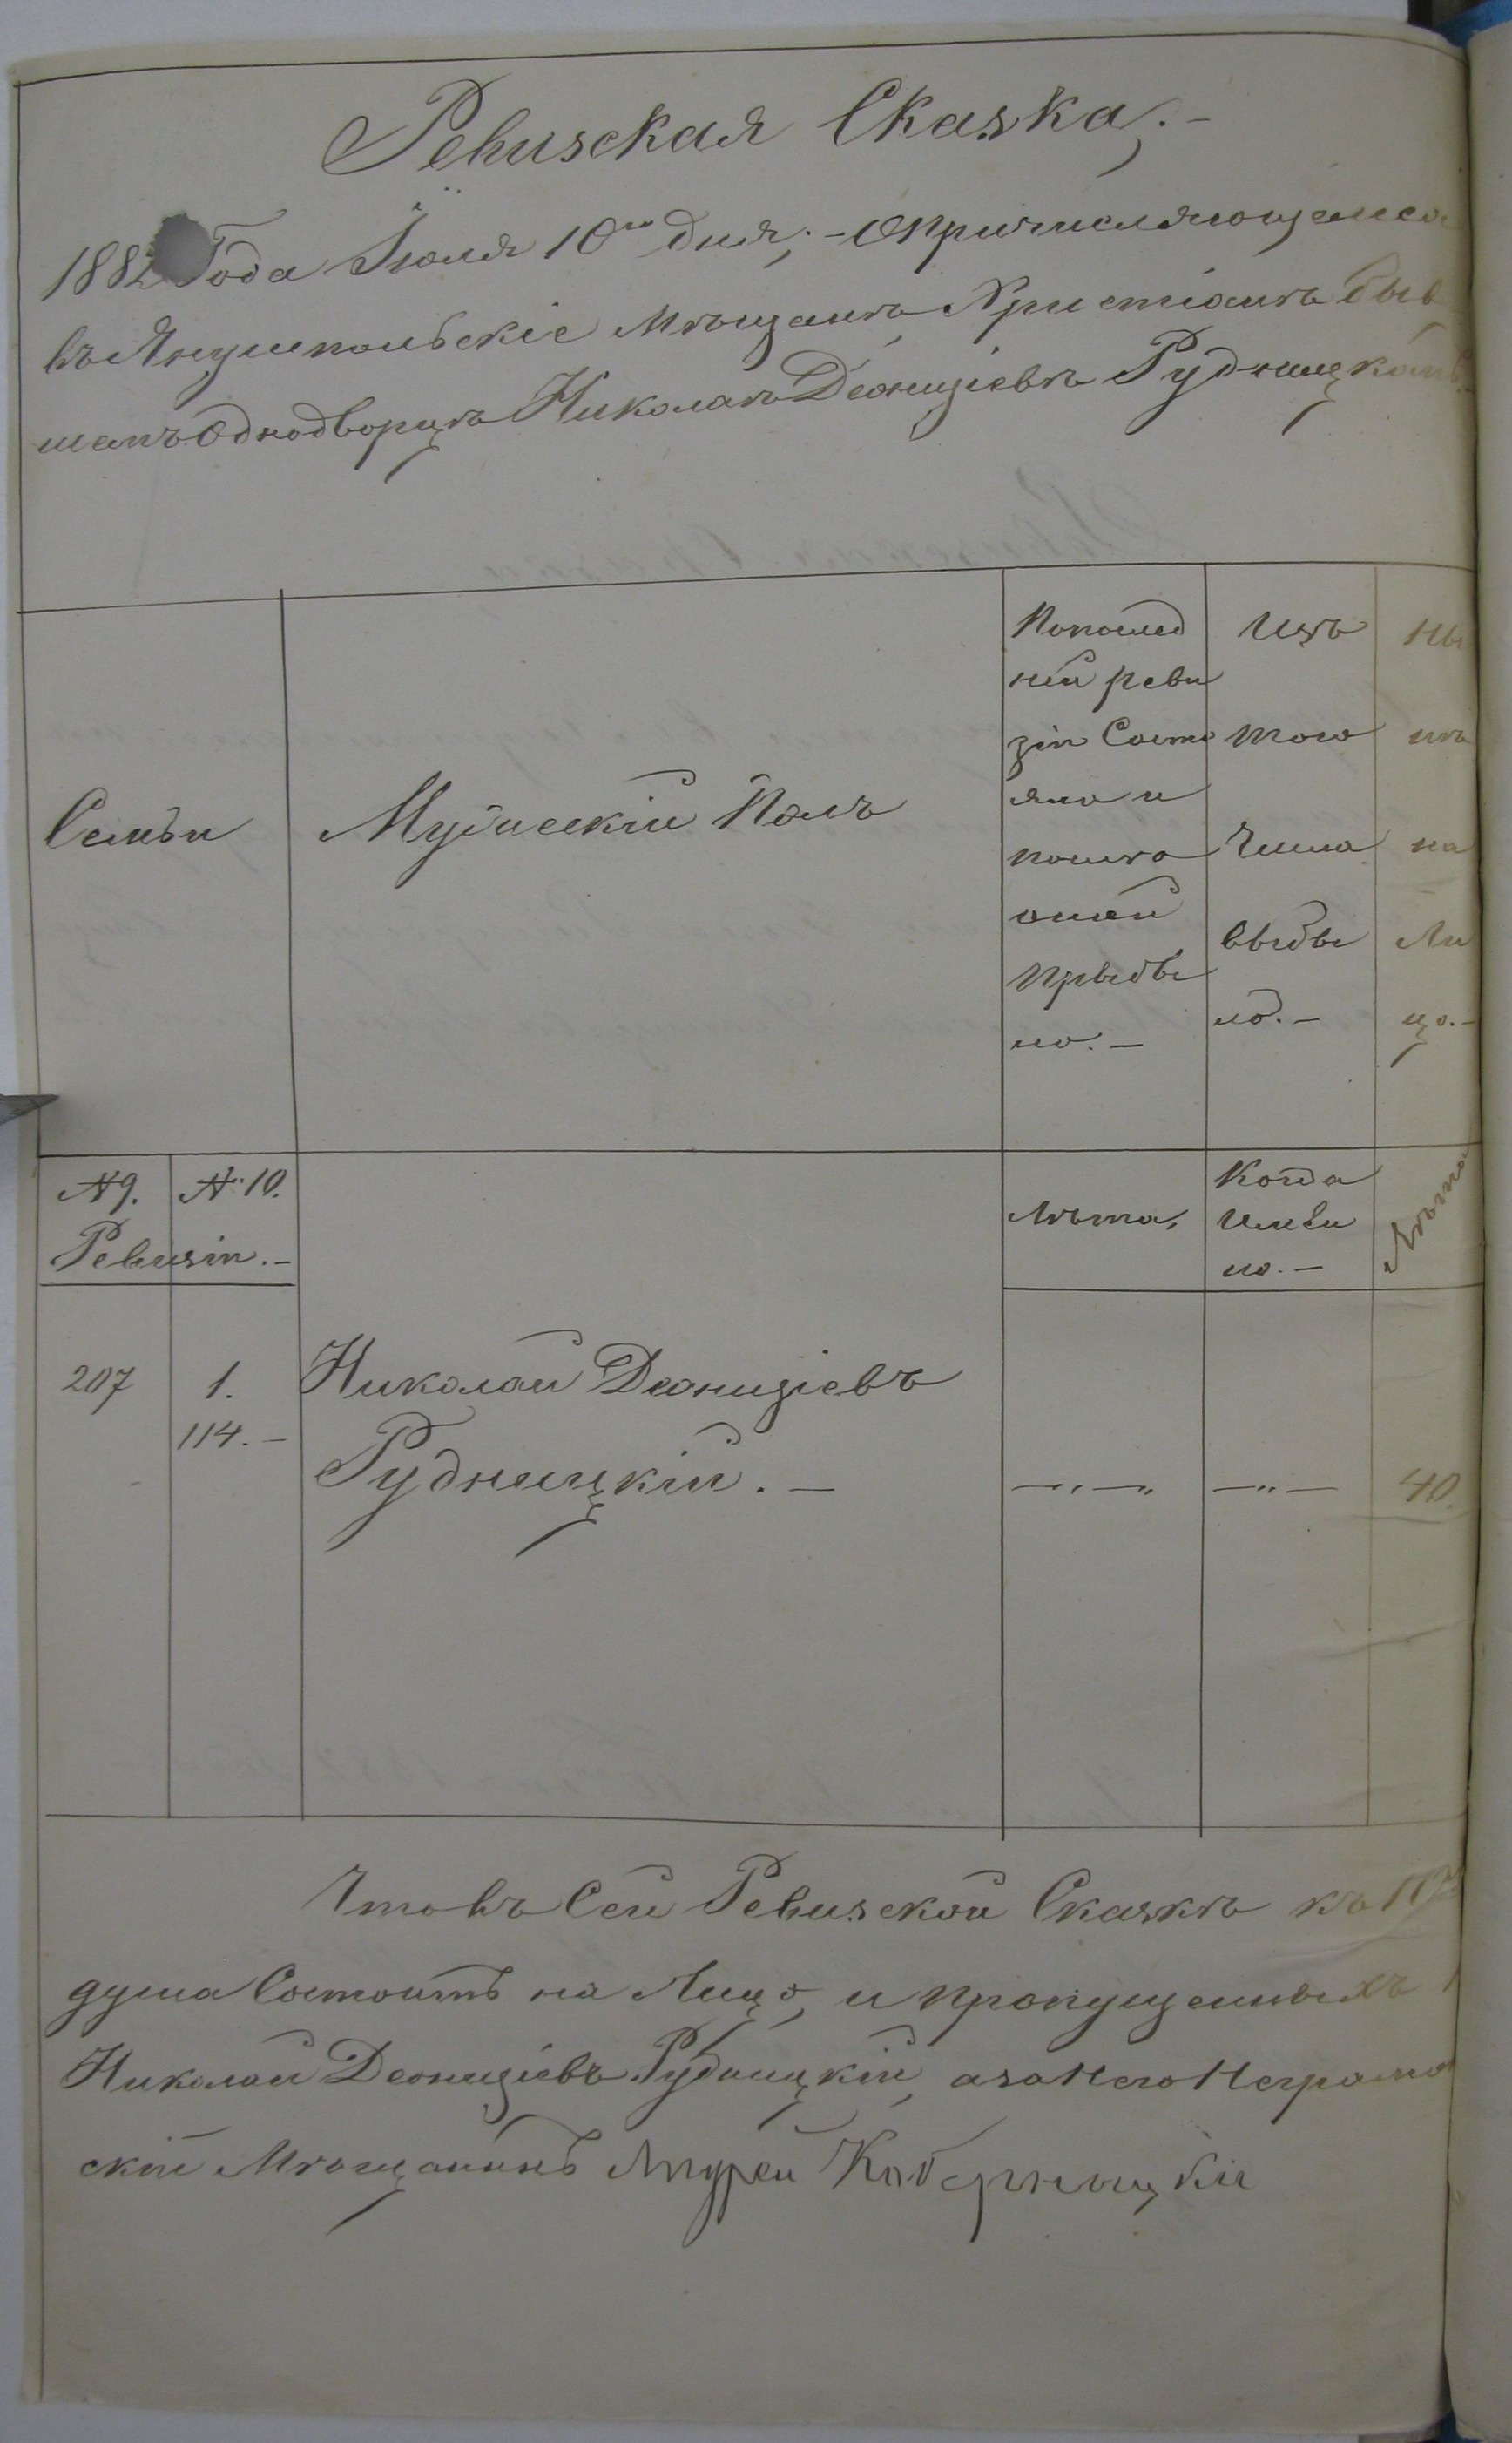 Ревизская Сказка.-
1882 Года Іюля 10го дня; - О причисляющемся
въ Янушпольскіе Мѣщанѣ Христіанѣ быв
шемъ Однодворцѣ Николаѣ Деонизіевѣ Рудницкомъ
Семьи
Мужескій Полъ
По послед
ней реви
зіи Состо
яло и
после
оной
прыбы
ло.-
Изъ
того
Числа
выбы
ло.-
Ны
нѣ
на
Ли
цо.-
№ 9. № 10.
Ревизіи.-
Лѣта,
Когда
Имен
но.-
Лѣта
207 1.
114.-
Николай Деонизіевъ
Рудницкій.-
—„— —„— 40.
Что въ Сей Ревизской Сказкѣ
душа Состоитъ на Лицо, и пропущенныхъ
Николай Деонизіевъ Рудницкій, а за него Неграмо
скій Мѣщанинъ